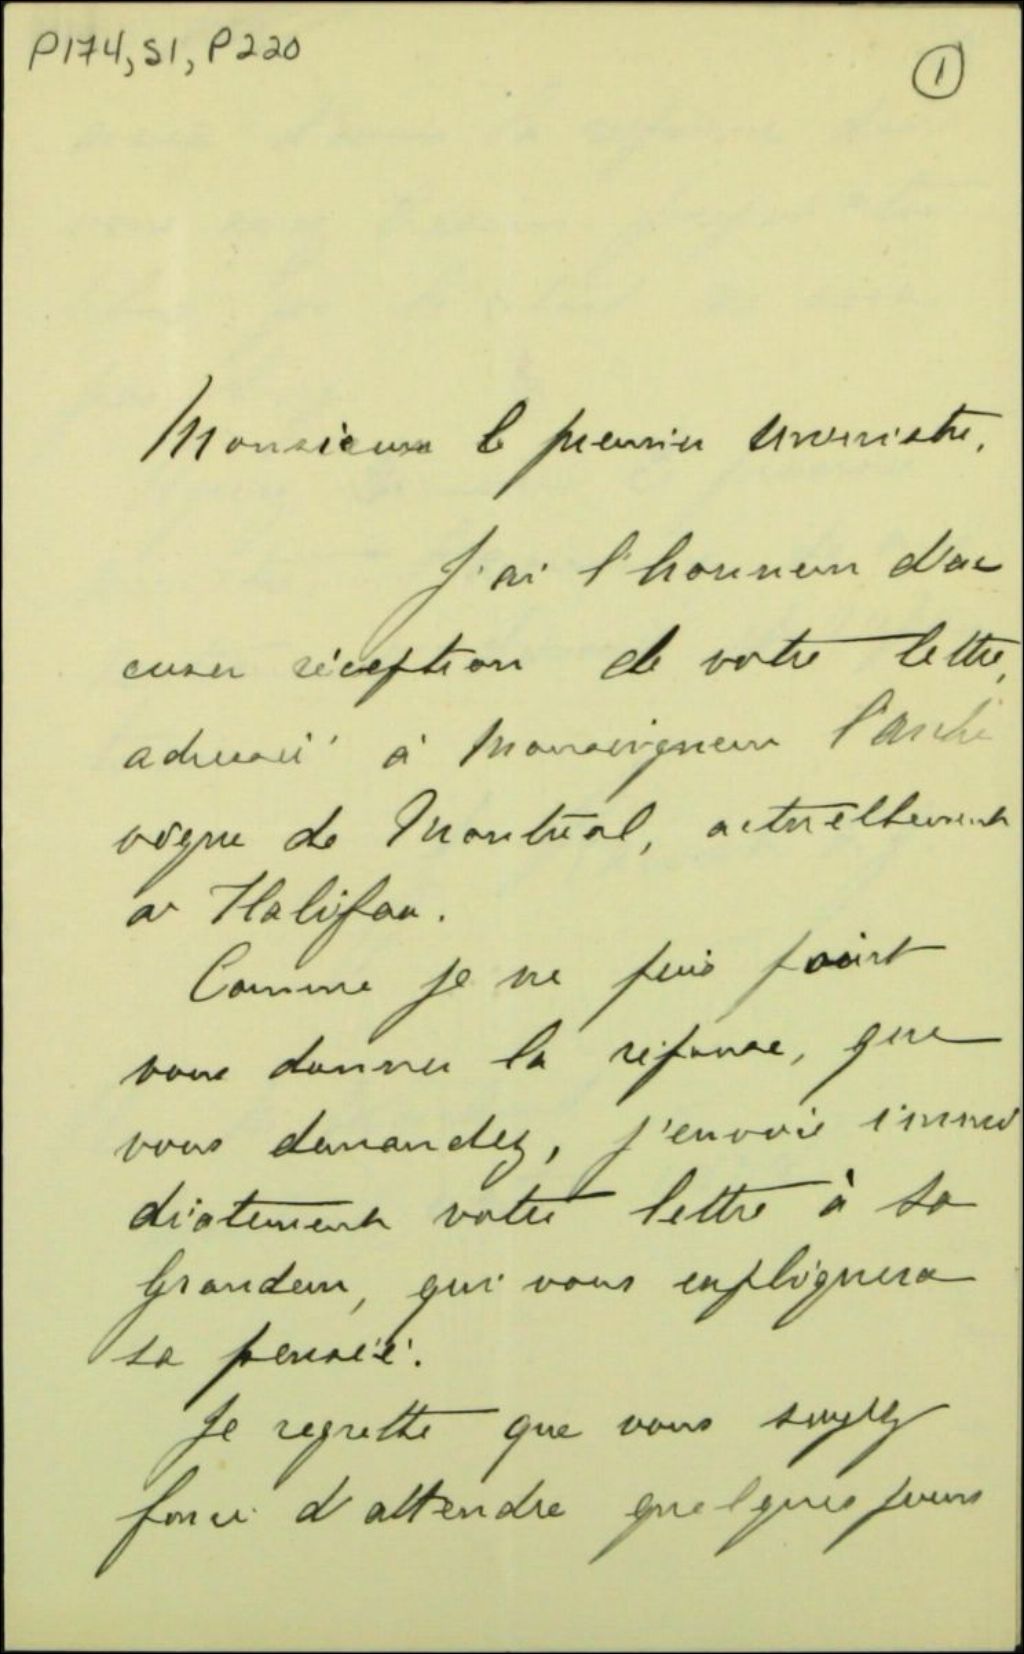 P174, S1, P220
1
Monsieur le premier ministre,
J'ai l'honneur d'ac
cuser réception de votre lettre,
adressée à Monseigneur l'arche
vêque de Montréal, actuellement
à Halifax.
Comme je ne puis point
vous donner la réponse, que
vous demandez, j'envoie immé
diatement votre lettre à Sa
Grandeur, qui vous expliquera
sa pensée.
Je regrette que vous soyez
forcé d'attendre quelques jours